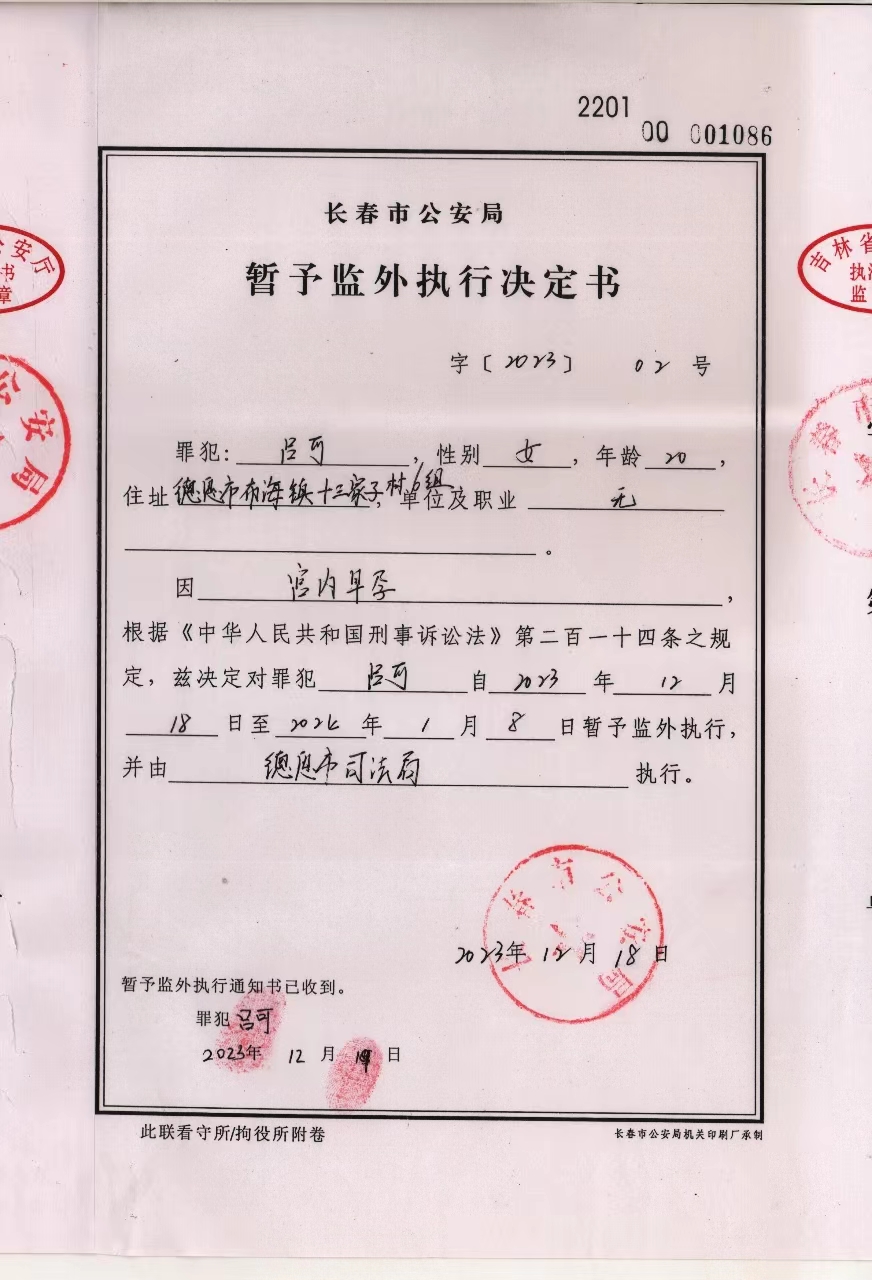 2201
00 001086
长春市公安局
暂予监外执行决定书
字〔2023〕 02 号
罪犯：吕可，性别 女，年龄 20，
住址德惠市布海镇十三家子村6组，单位及职业 无
。
因 宫内早孕，
根据《中华人民共和国刑事诉讼法》第二百一十四条之规
定，兹决定对罪犯 吕可 自 2023 年 12 月
18 日至 2024 年 1 月 8 日暂予监外执行，
并由 德惠市司法局 执行。
长春市公安局
2023年 12月 18日
暂予监外执行通知书已收到。
罪犯 吕可
2023年 12 月 日
此联看守所/拘役所附卷
长春市公安局机关印刷厂承制
公安厅
书
章
公安局
吉林省
执法
监
长春市